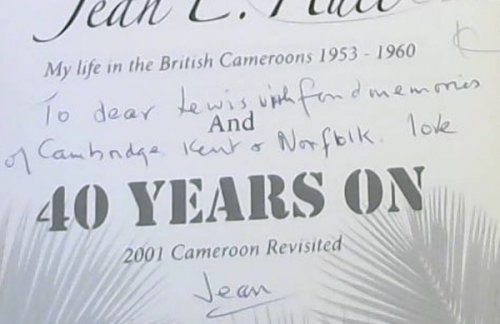 Jean L.
My life in the British Cameroons 1953 - 1960
To dear Lewis with fond memories
And
of Cambridge Kent & Norfolk. love
40 YEARS ON
2001 Cameroon Revisited
Jean